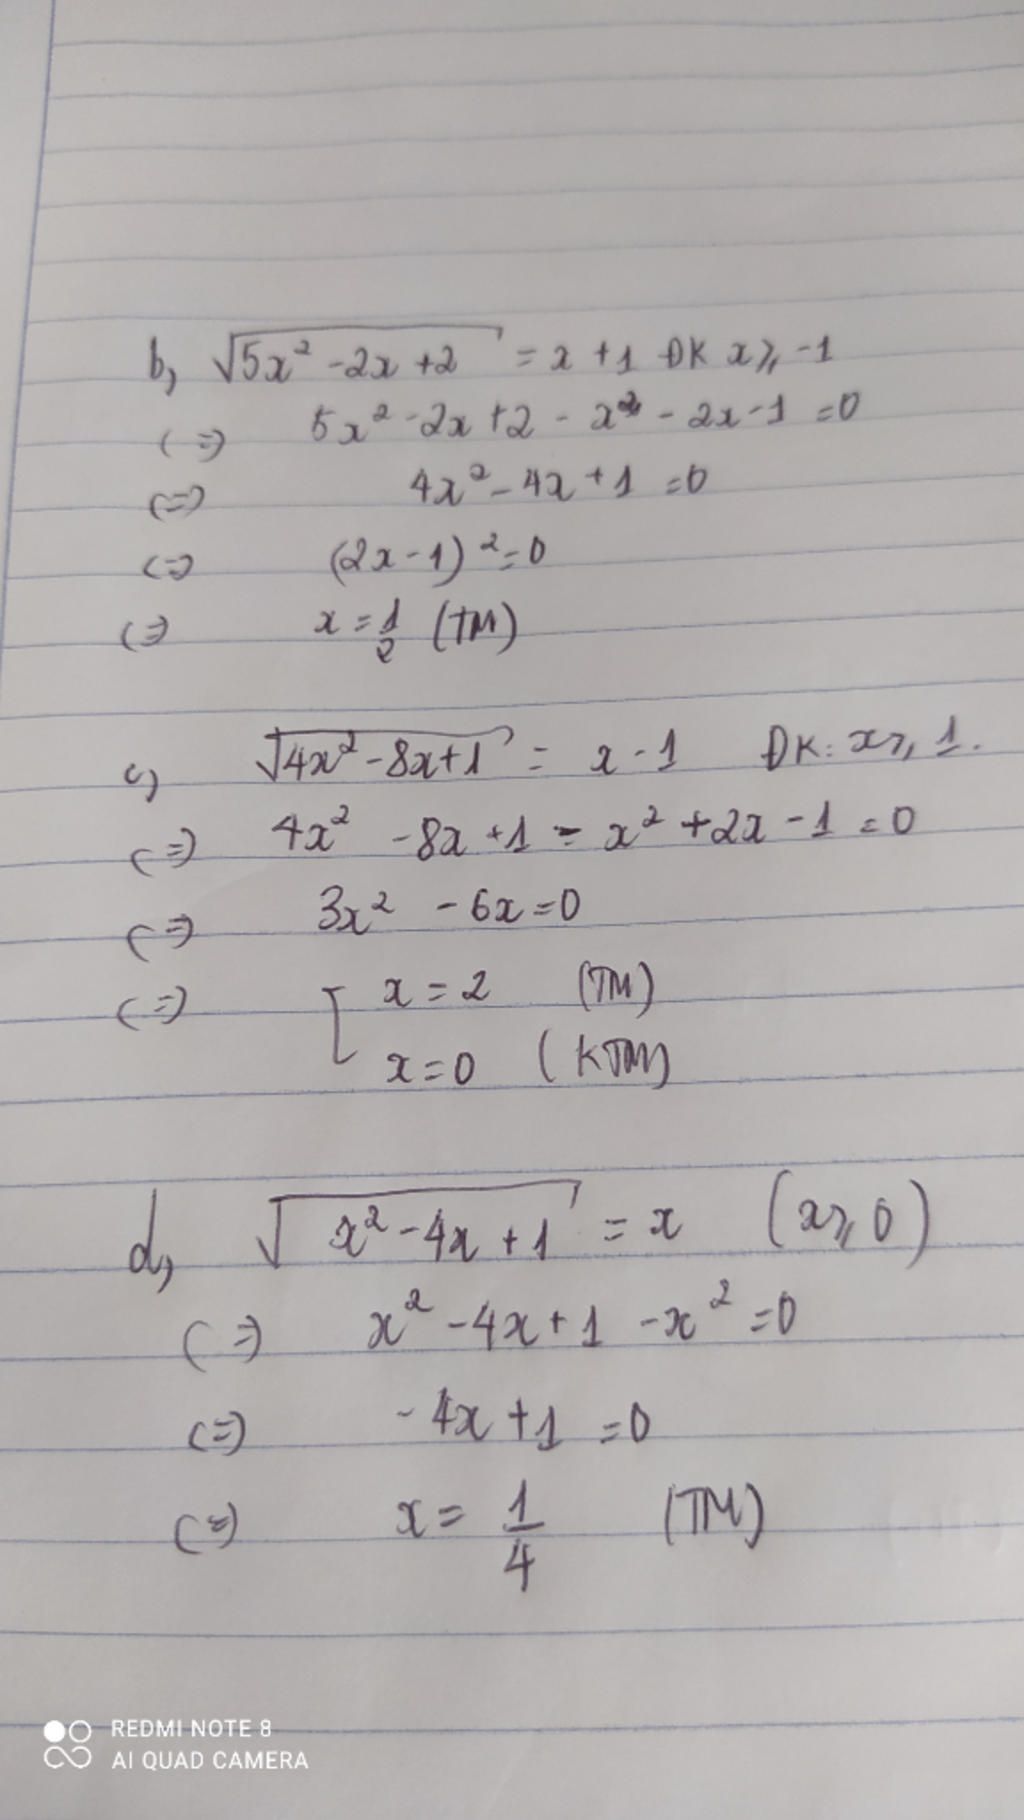 b, √(5x² - 2x + 2) = x + 1 ĐK x ⩾ -1
(=) 5x² - 2x + 2 - x² - 2x - 1 = 0
(=) 4x² - 4x + 1 = 0
(=) (2x - 1)² = 0
(=) x = 1/2 (TM)
c, √(4x² - 8x + 1) = x - 1 ĐK: x ⩾ 1.
(=) 4x² - 8x + 1 - x² + 2x - 1 = 0
(=) 3x² - 6x = 0
(=) [ x = 2 (TM)
x = 0 (KTM)
d, √(x² - 4x + 1) = x (x ⩾ 0)
(=) x² - 4x + 1 - x² = 0
(=) - 4x + 1 = 0
(=) x = 1/4 (TM)
REDMI NOTE 8
AI QUAD CAMERA